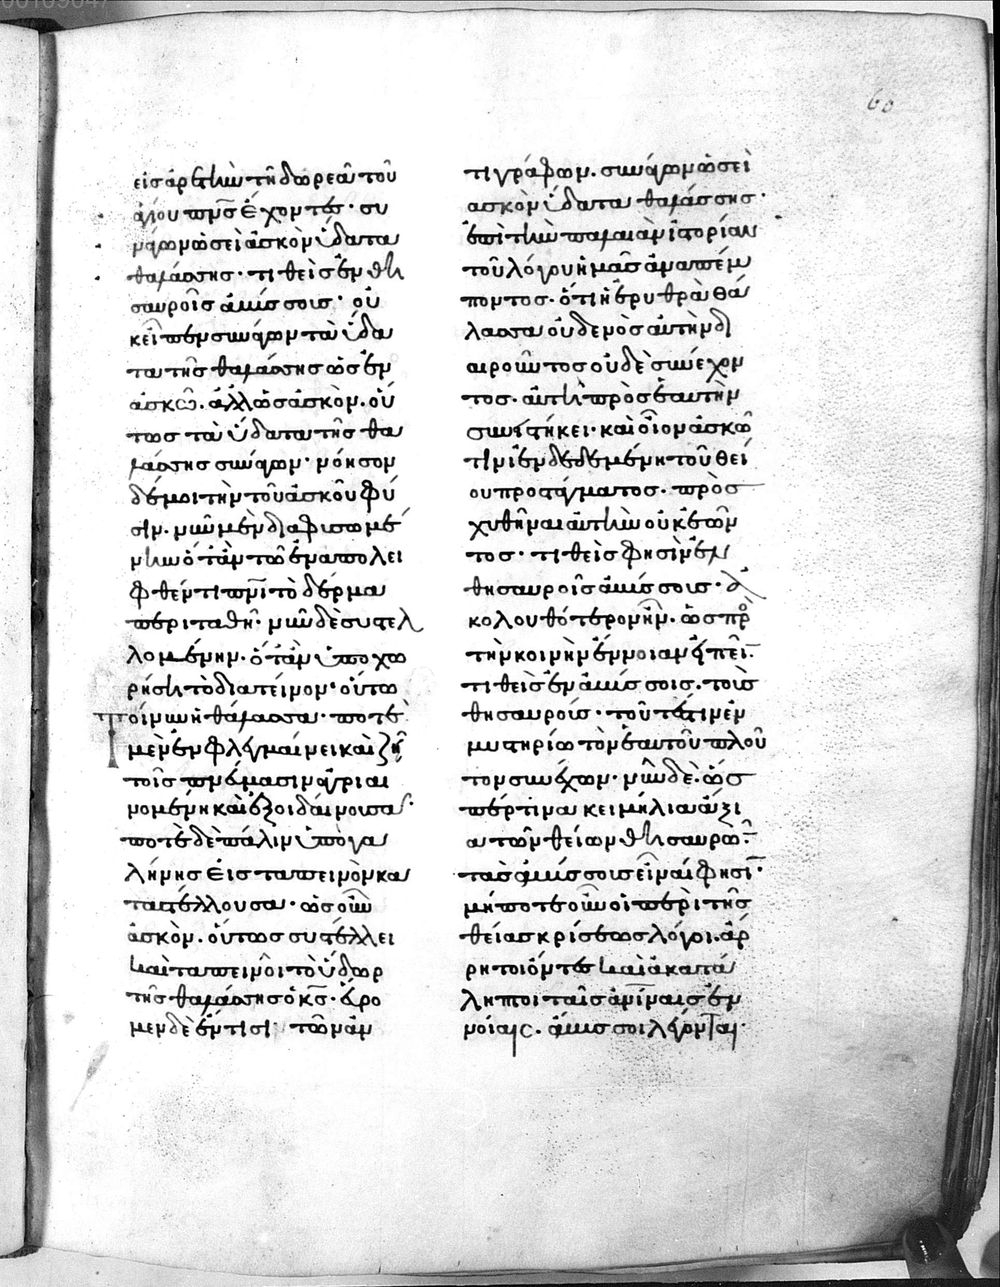 60
εἰς ἀρετὴν τῇ δωρεᾷ τοῦ
ἁγίου πνς ἔχοντες· συ
νάγων ὡσεὶ ἀσκὸν ὕδατα
θαλάσσης· τιθεὶς ἐν θη
σαυροῖς ἀβύσσους· οὐ
κεῖ πεν συνάγων τὰ ὕδα
τα τῆς θαλάσσης ὡς ἐν
ἀσκῶ. ἀλλ ὡς ἀσκὸν. οὕ
τως τὰ ὕδατα τῆς θα
λάσσης συνάγων· νόησον
δέ μοι τὴν τοῦ ἀσκοῦ φύ
σιν. νῦν μὲν διαφισωμέ
νην ὅταν τῶ ἐναπολει
φθέντι πνι τὸ δέρμα
περιταθῆ· νῦν δὲ συστελ
λομένην. ὅταν ὑποχω
ρήση τὸ διατεῖνον· οὕτω
τοίνυν ἡ θάλασσα· ποτὲ
μὲν ἐν φλεγμαίνει καὶ ζῆ
τοῖς πνέμασιν ἀγριαι
νομένη καὶ ἐξοιδαίνουσα·
ποτὲ δὲ πάλιν ὑπὸ γα
λήνης εἰς ταπεινὸν κα
ταστέλλουσα· ὡς οὖν
ἀσκὸν. οὕτως συστέλλει
καὶ ταπεινοῖ τὸ ὕδωρ
τῆς θαλάσσης ὁ κς· εὕρο
μεν δὲ ἔν τισι τῶν ἀν
τιγράφων. συνάγων ὡσεὶ
ἀσκὸν ὕδατα θαλάσσης·
ἐπὶ τὴν παλαιὰν ἱστορίαν
τοῦ λόγου ἡμᾶς ἀναπέμ
ποντος· ὅτι ἡ ἐρυθρὰ θά
λασσα οὐδενὸς αὐτὴν δι
αιροῦντος οὐδὲ συνέχον
τος· αὐτὴ πρὸς ἑαυτὴν
συνεστήκει· καὶ οἷον ἀσκῶ
τινὶ ἐνδεδεμένη τοῦ θεί
ου προστάγματος· πρὸς
χυθῆναι αὐτὴν οὐκ ἐῶν
τος· τιθεὶς φησὶν ἐν
θησαυροῖς ἀβύσσους· ἀ
κολουθότερον ἦν. ὡς πρ
τὴν κοινὴν ἔννοιαν εἰπεῖ·
τιθεὶς ἐν ἀβύσσοις. τοὺς
θησαυρούς· τοῦτέστιν ἐν
μυστηρίω τὸν ἑαυτοῦ πλοῦ
τον συνέχων· νῦν δὲ. ὡς
πέρ τινα κειμήλια ἄξι
α τῶν θείων θησαυρῶ·
τὰς ἀβύσσους εἶναί φησι·
μήποτε οὖν οἱ περὶ τῆς
θείας κρίσεως λόγοι. ἄρ
ρητοι ὄντες καὶ ἀκατά
ληπτοι ταῖς ἀνίναις ἐν
νοίαις. ἄβυσσοι λέγονται·